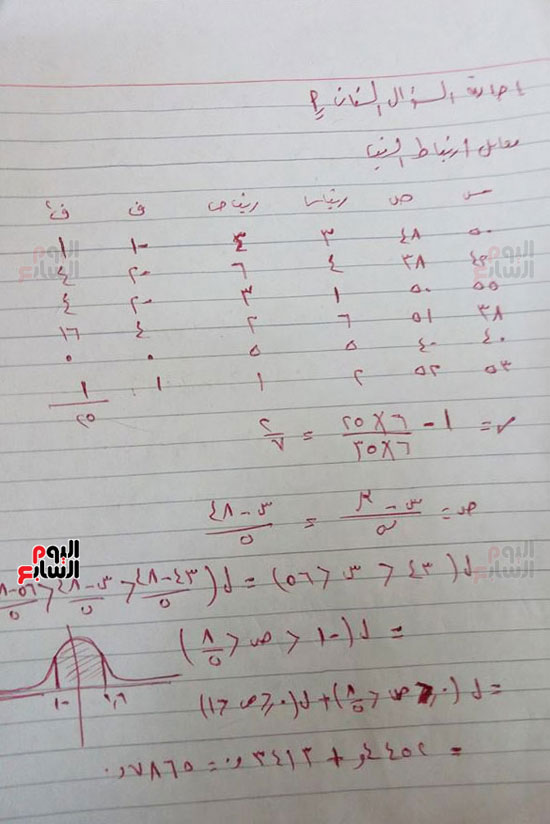 إجابة السؤال الثانى P
معامل ارتباط الرتب
س ص رتب س رتب ص ف ف²
٥٠ ٤٨ ٣ ٤ -١ ١
٤٥ ٣٨ ٤ ٦ -٢ ٤
٥٥ ٥٠ ١ ٣ -٢ ٤
٣٨ ٥١ ٦ ٢ ٤ ١٦
٤٠ ٤٠ ٥ ٥ ٠ ٠
٥٣ ٥٢ ٢ ١ ١ ١
٢٥
ر = ١ - ٦×٢٥ / ٦×٣٥ = ٢/٧
ص = س - μ / σ = س - ٤٨ / ٥
ل (٤٣ < س < ٥٦) = ل (٤٣-٤٨ / ٥ < س-٤٨ / ٥ < ٥٦-٨
= ل (-١ < ص < ٨/٥)
= ل (٠ ≤ ص < ٨/٥) + ل (٠ ≤ ص < ١)
= ٤٤٥٢, + ٣٤١٣, ٠ = ٧٨٦٥, ٠
-١ ١,٦
اليوم السابع
اليوم السابع
اليوم السابع